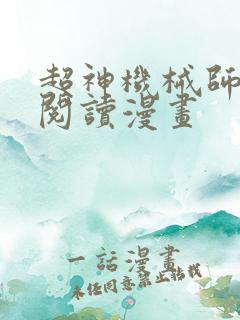 超神機械師
閱讀漫畫
一話漫畫
未经同意禁止转载